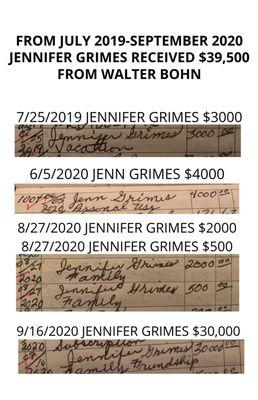 FROM JULY 2019-SEPTEMBER 2020
JENNIFER GRIMES RECEIVED $39,500
FROM WALTER BOHN
7/25/2019 JENNIFER GRIMES $3000
25 Jennifer Grimes 3000 00
2019 Vacation
6/5/2020 JENN GRIMES $4000
1007 Jenn Grimes 4000 00
2020 Personal Use
8/27/2020 JENNIFER GRIMES $2000
8/27/2020 JENNIFER GRIMES $500
27 Jennifer Grimes 2000 00
2020 Family
27 Jennifer Grimes 500 00
2020 Family
9/16/2020 JENNIFER GRIMES $30,000
2020 Subscription
Jennifer Grimes 30000 00
2020 Family Friendship